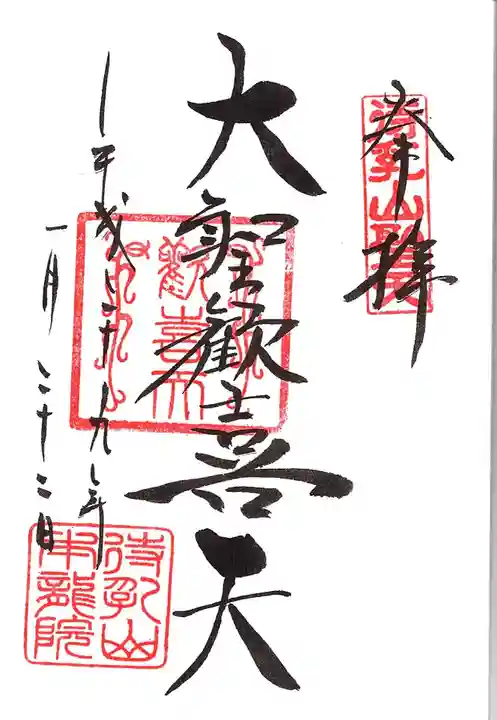 奉拝
待乳山聖天
大聖歓喜天
歡喜天
平成二十九年
一月二十二日
待乳山
本龍院